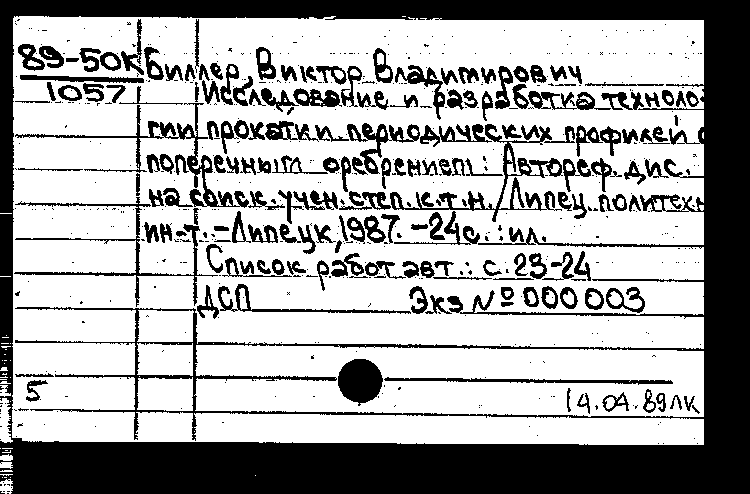 89-50к Биллер, Виктор Владимирович
1057 Исследование и разработка техноло-
гии прокатки периодических профилей с
поперечным оребрением: Автореф. дис.
на соиск. учен. степ. к.т.н. / Липец. политехн
ин-т. - Липецк, 1987. - 24с. : ил.
Список работ авт.: с. 23-24
ДСП Экз № 000 003
5
14.04.89 лк